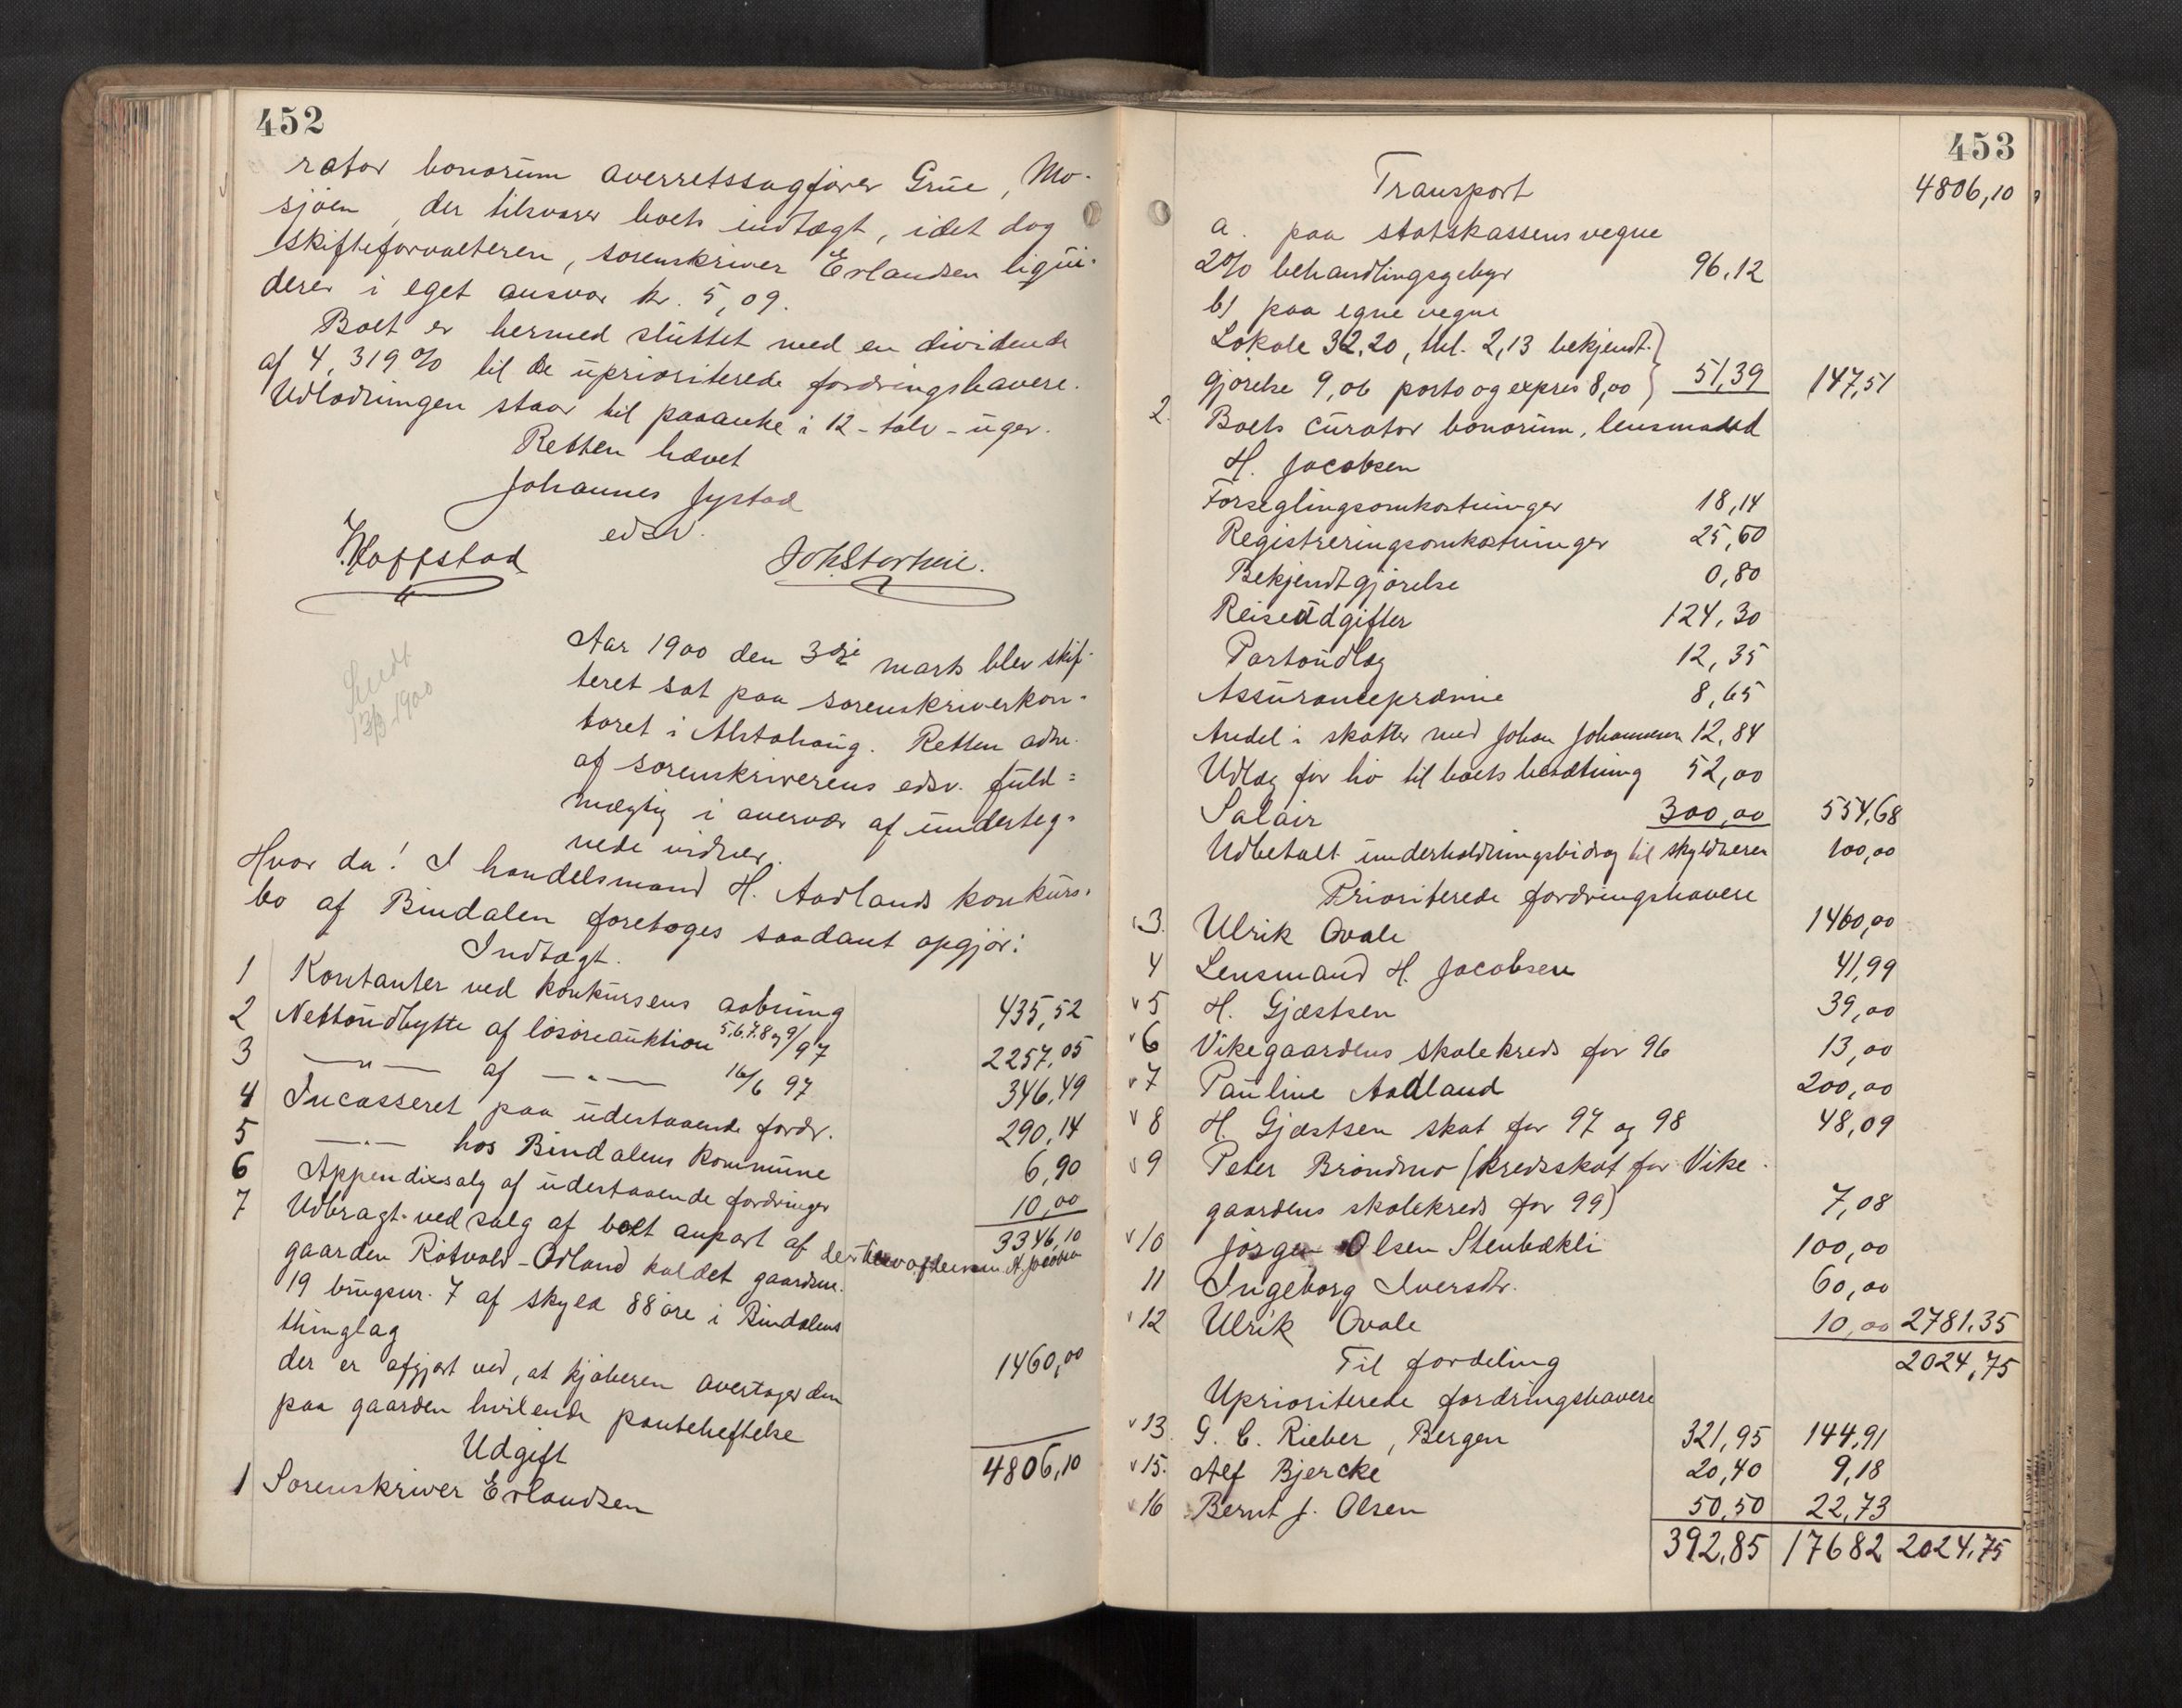 452
rator bonorum overretssagfører Grüe, Mo-
sjøen, der tilsvarer boets indtægt, idet dog
skifteforvalteren, sorenskriver Erlandsen liqui-
derer i eget ansvar kr. 5,09.
Boet er hermed sluttet med en dividende
af 4,319% til de uprioriterede fordringshavere.
Udlodningen staar til paaanke i 12-tolv-uger.
Retten hævet
Johannes Jystad
edsv.
Hoffstad Joh Storheie.
Aar 1900 den 3die marts blev skif-
teret sat paa sorenskriverkon-
toret i Alstahaug. Retten adm.
af sorenskriverens edsv. fuld=
mægtig i overvær af underteg-
nede vidner.
13/3 1900
Hvor da! I handelsmand H. Aadlands konkurs-
bo af Bindalen foretoges saadant opgjør:
Indtægt.
1 Kontanter ved konkursens aabning 435,52
2 Nettoudbytte af løsøreauktion 5.6.7.8 og 9/ 97 2257,05
3 —"— af —"— 16/6 97 346,49
4 Incasseret paa udestaaende fordr. 290,14
5 —"— hos Bindalens kommune 6,90
6 Appendixsalg af udestaaende fordringer 10,00
3346,10
7 Udbragt ved salg af boet anpart af
gaarden Røtvold-Odland kaldet gaardsnr.
19 brugsnr. 7 af skyld 88 øre i Bindalens
thinglag 1460,00
der er afgjort ved, at kjøberen overtager den
paa gaarden hvilende panteheftelse
4806,10
Udgift
1 Sorenskriver Erlandsen
453
Transport 4806,10
a. paa statskassens vegne
2% behandlingsgebyr 96,12
b) paa egne vegne
Lokale 32,20, tel. 2,13 bekjendt-
gjørelse 9,06 porto og expres 8,00 51,39 147,51
2. Boets curator bonorum, lensmand
H. Jacobsen
Forseglingsomkostninger 18,14
Registreringsomkostninger 25,60
Bekjendtgjørelse 0,80
Reiseudgifter 124,30
Portoudlæg 12,35
Assurancepræmie 8,65
Andel i skatter med Johan Johannesen 12,84
Udlæg for hø til boets besætning 52,00
Salair 300,00 554,68
Udbetalt underholdningsbidrag til skyldneren 100,00
Prioriterede fordringshavere
3. Ulrik Qvale 1460,00
4 Lensmand H. Jacobsen 41,99
v 5 H. Gjæstsen 39,00
v 6 Vikegaardens skolekreds for 96 13,00
v 7 Pauline Aadland 200,00
v 8 H. Gjæstsen skat for 97 og 98 48,09
v 9 Peter Brøndmo (kredsskat for Vike-
gaardens skolekreds for 99) 7,08
v 10 Jørgen Olsen Stenbækli 100,00
11 Ingeborg Iversdr. 60,00
v 12 Ulrik Qvale 10,00 2781,35
Til fordeling 2024,75
Uprioriterede fordringshavere
v 13. G. C. Rieber, Bergen 321,95 144,91
v 15. Alf Bjercke 20,40 9,18
v 16 Bernt J. Olsen 50,50 22,73
392,85 17682 2024,75